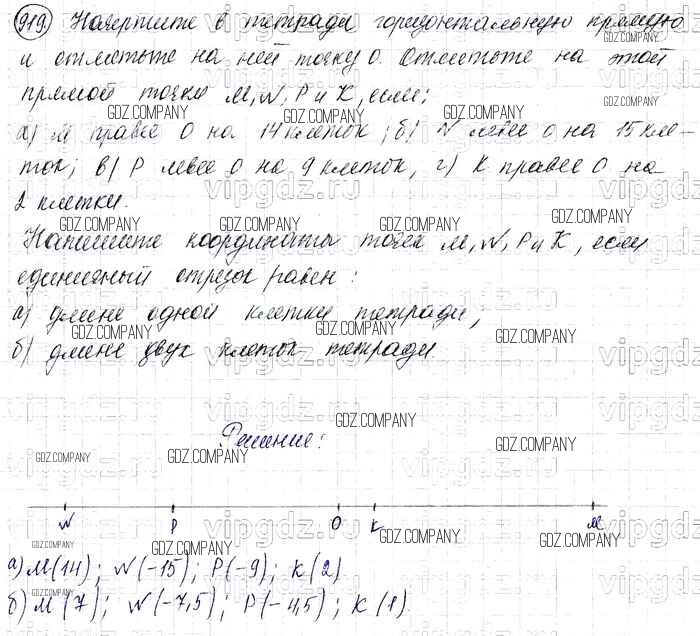 919. Начертите в тетради горизонтальную прямую
и отметьте на ней точку О. Отметьте на этой
прямой точки M, N, P и K, если:
а) M правее О на 14 клеток; б) N левее О на 15 кле-
ток; в) P левее О на 9 клеток, г) K правее О на
2 клетки.
Напишите координаты точек M, N, P и K, если
единичный отрезок равен:
а) длине одной клетки тетради;
б) длине двух клеток тетради
Решение:
N P O K M
а) M(14); N(-15); P(-9); K(2)
б) M(7); N(-7,5); P(-4,5); K(1).
GDZ.COMPANY
vipgdz.ru